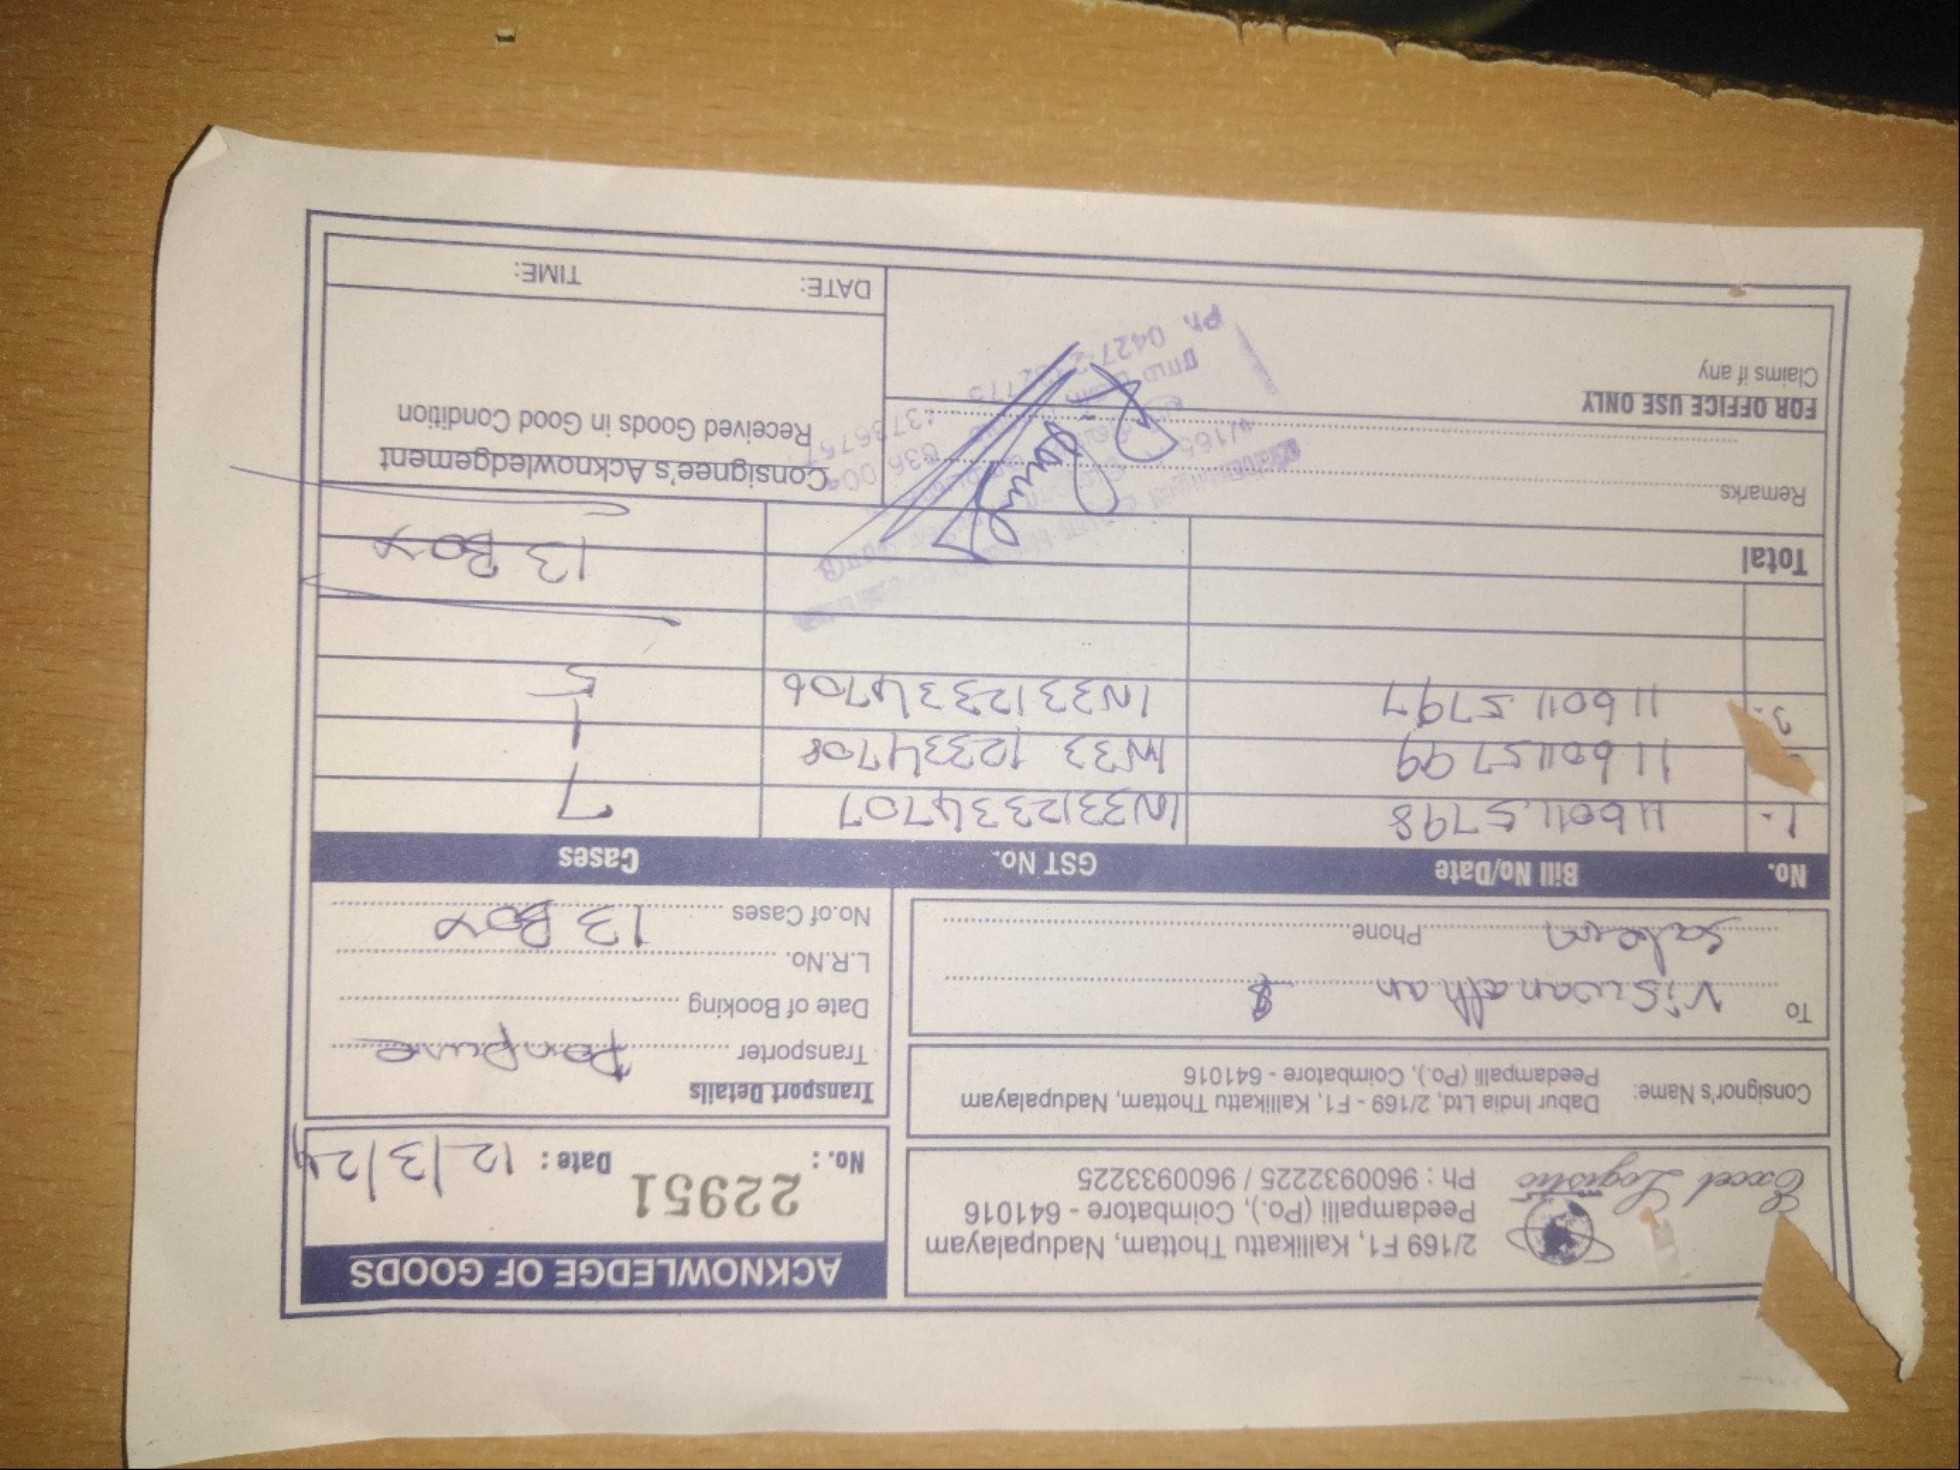 ACKNOWLEDGE OF GOODS
Excel Logistic
2/169 F1, Kallikattu Thottam, Nadupalayam
Peedampalli (Po.), Coimbatore - 641016
Ph : 9600932225 / 9600933225
No. : 22951 Date : 12/3/24
Consignor's Name: Dabur India Ltd, 2/169 - F1, Kallikattu Thottam, Nadupalayam
Peedampalli (Po.), Coimbatore - 641016
To Viswanathan
Salem Phone
Transport Details
Transporter
Date of Booking
L.R.No.
No.of Cases 13 Box
No. Bill No/Date GST No. Cases
1. 116011.5798 IN3312334707 7
116011.5799 IN33 12334708 1
3. 116011.5797 IN3312334706 5
Total 13 Box
Remarks
FOR OFFICE USE ONLY
Claims if any
Consignee's Acknowledgement
Received Goods in Good Condition
DATE: TIME: